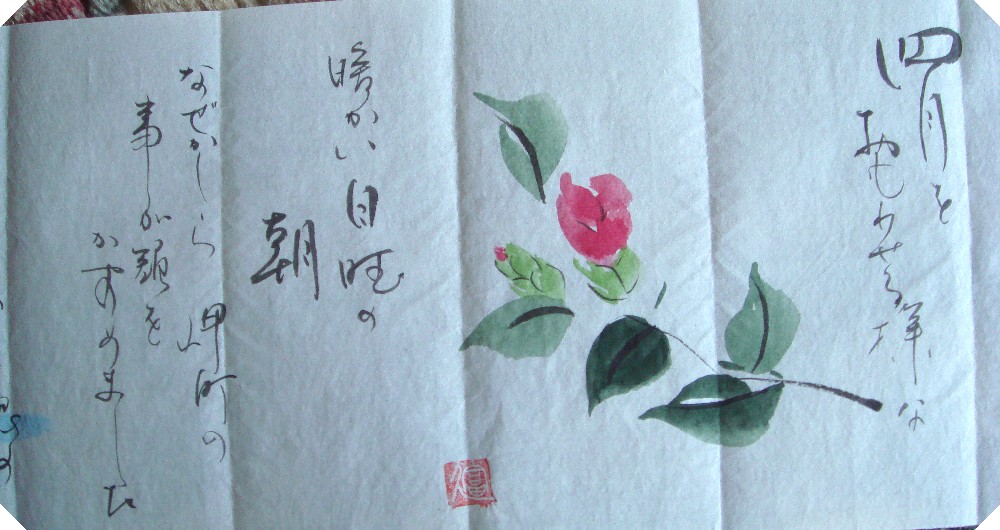 四月を
おもわせる様な
暖かい日曜の
朝
なぜかしら岬町の
事が頭を
かすめました